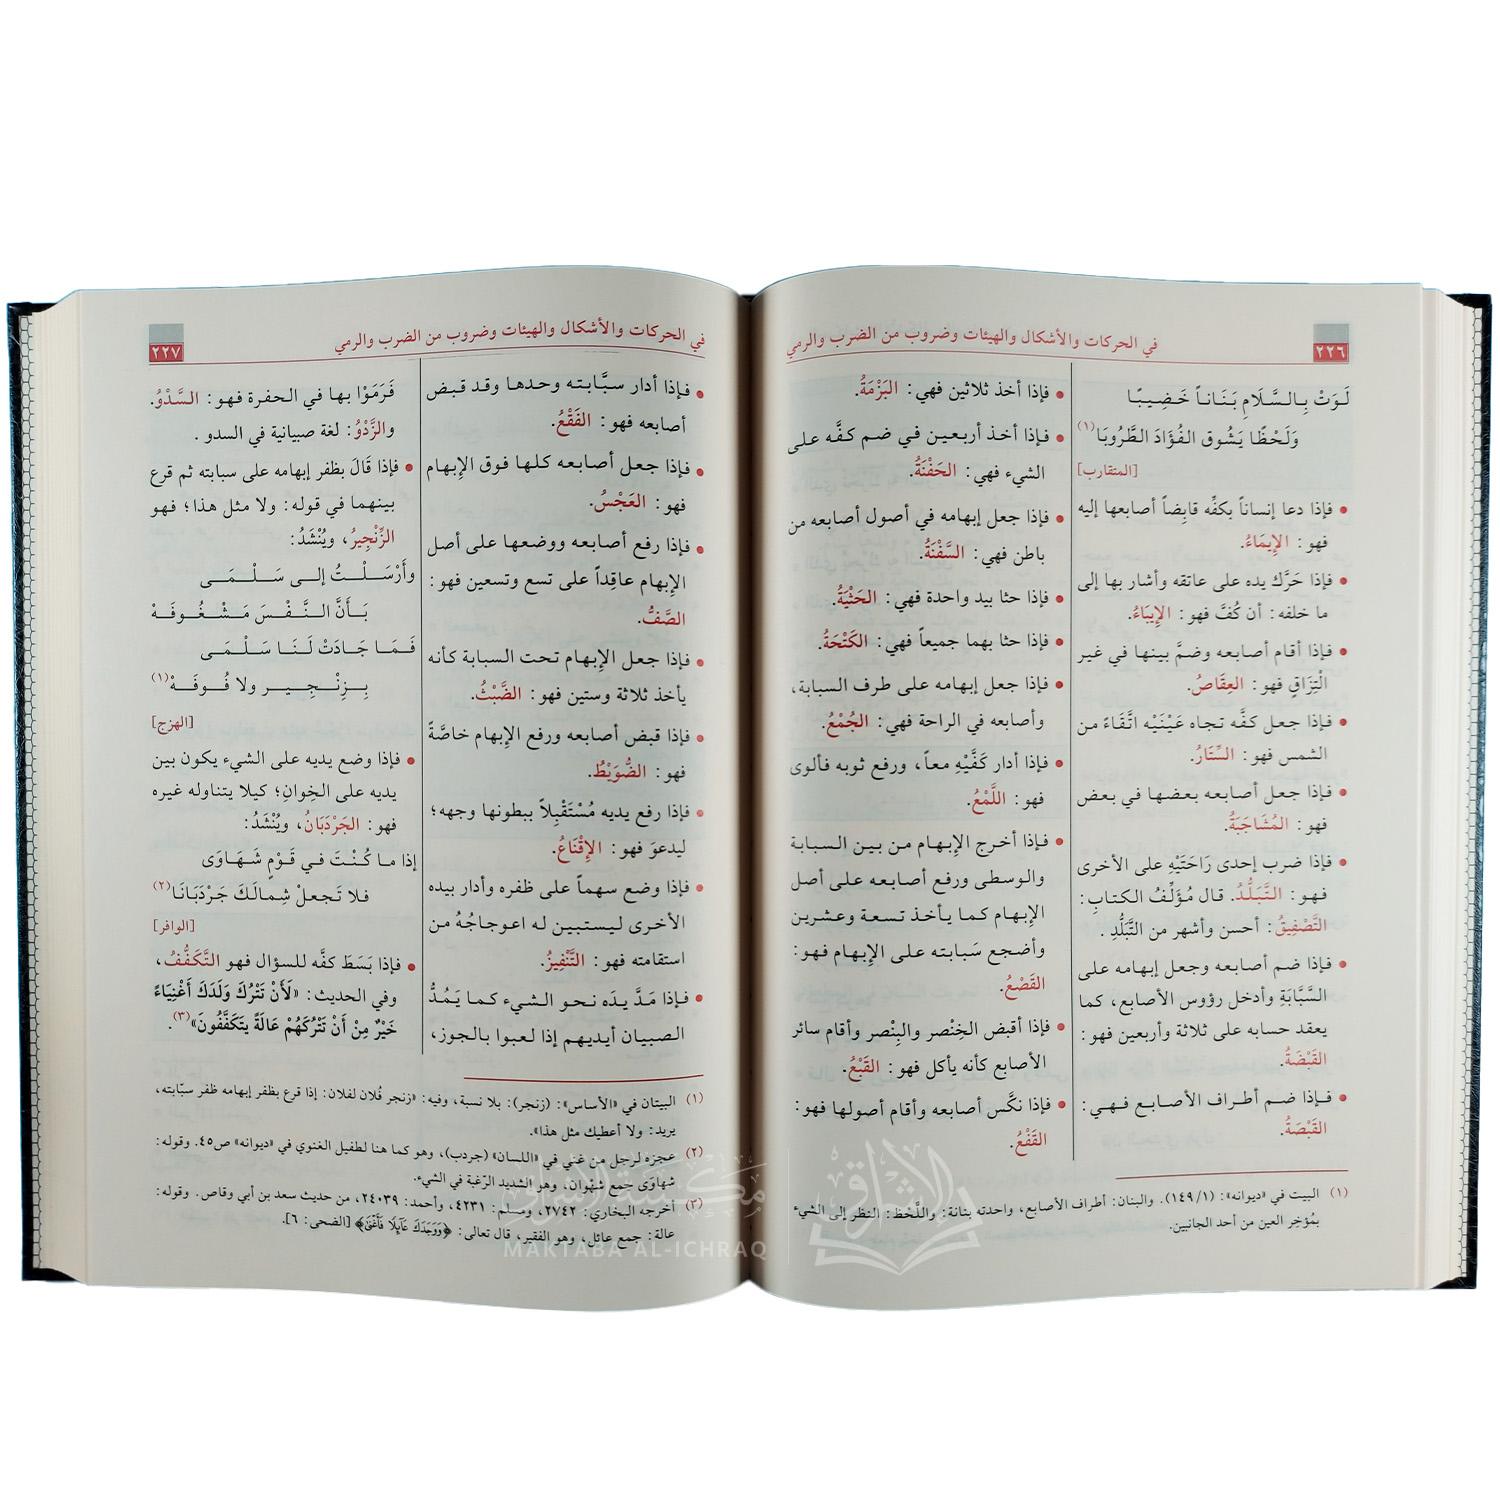 ٢٢٦
في الحركات والأشكال والهيئات وضروب من الضرب والرمي
لَوَتْ بِالسَّلَامِ بَنَاناً خَضِيبًا
وَلَحْظًا يَشُوق الفُؤَادَ الطَّرُوبَا(١)
[المتقارب]
• فإذا دعا إنساناً بكفِّه قابِضاً أصابعها إليه
فهو: الإِيمَاءُ.
• فإذا حَرَّك يده على عاتقه وأشار بها إلى
ما خلفه: أن كُفَّ فهو: الإِيبَاءُ.
• فإذا أقام أصابعه وضمَّ بينها في غير
الْتِزَاقٍ فهو: العِقَاصُ.
• فإذا جعل كفَّه تجاه عَيْنَيْه اتِّقَاءً من
الشمس فهو: السِّتَارُ.
• فإذا جعل أصابعه بعضها في بعض
فهو: المُشَاجَبَةُ.
• فإذا ضرب إحدى رَاحَتَيْهِ على الأخرى
فهو: التَّبَلُّدُ. قال مُؤَلِّفُ الكتابِ:
التَّصْفِيقُ: أحسن وأشهر من التَّبَلُّدِ.
• فإذا ضم أصابعه وجعل إبهامه على
السَّبَّابَةِ وأدخل رؤوس الأصابع، كما
يعقد حسابه على ثلاثة وأربعين فهو:
القَبْضَةُ.
• فإذا ضم أطراف الأصابع فهي:
القَبْصَةُ.
• فإذا أخذ ثلاثين فهي: البَزْمَةُ.
• فإذا أخذ أربعين في ضم كفَّه على
الشيء فهي: الحَفْنَةُ.
• فإذا جعل إبهامه في أصول أصابعه من
باطن فهي: السَّفْنَةُ.
• فإذا حثا بيد واحدة فهي: الحَثْيَةُ.
• فإذا حثا بهما جميعاً فهي: الكَثْحَةُ.
• فإذا جعل إبهامه على طرف السبابة،
وأصابعه في الراحة فهي: الجُمْعُ.
• فإذا أدار كَفَّيْهِ معاً، ورفع ثوبه فألوى
فهو: اللَّمْعُ.
• فإذا أخرج الإبهام من بين السبابة
والوسطى ورفع أصابعه على أصل
الإبهام كما يأخذ تسعة وعشرين
وأضجع سَبابته على الإبهام فهو:
القَصْعُ.
• فإذا أقبض الخِنْصر والبِنْصر وأقام سائر
الأصابع كأنه يأكل فهو: القَبْعُ.
• فإذا نكَّس أصابعه وأقام أصولها فهو:
القَفْعُ.
(١) البيت في «ديوانه»: (١٤٩/١). والبنان: أطراف الأصابع، واحدته بنانة: واللَّحْظ: النظر إلى الشيء
بمُؤخِر العين من أحد الجانبين.
في الحركات والأشكال والهيئات وضروب من الضرب والرمي
٢٢٧
• فإذا أدار سبَّابته وحدها وقد قبض
أصابعه فهو: الفَقْعُ.
• فإذا جعل أصابعه كلها فوق الإبهام
فهو: العَجْسُ.
• فإذا رفع أصابعه ووضعها على أصل
الإبهام عاقِداً على تسع وتسعين فهو:
الصَّفُّ.
• فإذا جعل الإبهام تحت السبابة كأنه
يأخذ ثلاثة وستين فهو: الضَّبْثُ.
• فإذا قبض أصابعه ورفع الإبهام خاصَّةً
فهو: الضُّوَيْطُ.
• فإذا رفع يديه مُسْتَقْبِلاً ببطونها وجهه؛
ليدعوَ فهو: الإِقْنَاعُ.
• فإذا وضع سهماً على ظفره وأدار بيده
الأخرى ليستبين له اعوجاجُهُ من
استقامته فهو: التَّنْفِيزُ.
• فإذا مَدَّ يدَه نحو الشيء كما يَمُدُّ
الصبيان أيديهم إذا لعبوا بالجوز،
فَرَمَوْا بها في الحفرة فهو: السَّدْوُ.
والزَّدْوُ: لغة صبيانية في السدو.
• فإذا قَالَ بظفر إبهامه على سبابته ثم قرع
بينهما في قوله: ولا مثل هذا؛ فهو
الزِّنْجِيرُ، ويُنْشَدُ:
وأَرْسَلْتُ إلى سَلْمَى
بَأَنَّ النَّفْسَ مَشْغُوفَهْ
فَمَا جَادَتْ لَنَا سَلْمَى
بِزِنْجِيرٍ ولا فُوفَهْ(١)
[الهزج]
• فإذا وضع يديه على الشيء يكون بين
يديه على الخِوانِ؛ كيلا يتناوله غيره
فهو: الجَرْدَبَانُ، ويُنْشَدُ:
إذا ما كُنْتَ في قَوْمٍ شَهَاوَى
فلا تَجعلْ شِمالَكَ جَرْدَبَانَا(٢)
[الوافر]
• فإذا بَسَطَ كفَّه للسؤال فهو التَّكَفُّفُ،
وفي الحديث: «لَأَنْ تَتْرُكَ وَلَدَكَ أَغْنِيَاءً
خَيْرٌ مِنْ أَنْ تَتْرُكَهُمْ عَالَةً يتَكَفَّفُونَ»(٣).
(١) البيتان في «الأساس»: (زنجر): بلا نسبة، وفيه: «زنجر فُلان لفلان: إذا قرع بظفر إبهامه ظفر سبّابته،
يريد: ولا أعطيك مثل هذا».
(٢) عجزه لرجل من غني في «اللسان» (جردب)، وهو كما هنا لطفيل الغنوي في «ديوانه» ص٤٥. وقوله:
شهاوَى جمع شهْوان، وهو الشديد الرّغبة في الشيء.
(٣) أخرجه البخاري: ٢٧٤٢، ومسلم: ٤٢٣١، وأحمد: ٢٤٠٣٩، من حديث سعد بن أبي وقاص. وقوله:
عالة: جمع عائل، وهو الفقير، قال تعالى: ﴿وَوَجَدَكَ عَآئِلًا فَأَغْنَىٰ﴾ [الضحى: ٦].
مكتبة الإشراق
MAKTABA AL-ICHRAQ
الإشراق